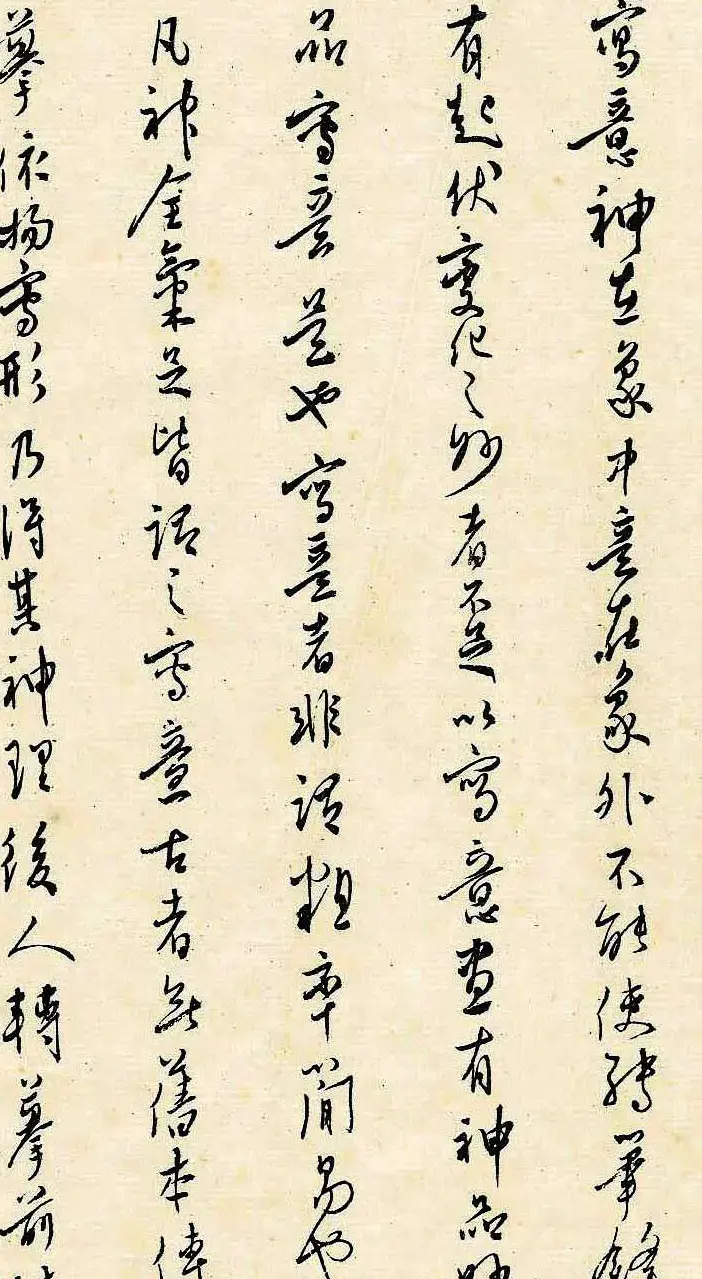 寫意神在象中意在象外不能使轉筆鋒
有起伏變化之妙者不足以寫意畫有神品妙
品寫意是也寫意者非謂粗率簡易也
凡神全氣足皆謂之寫意古者無舊本傳
摹依楊寫形乃得其神理後人轉摹前